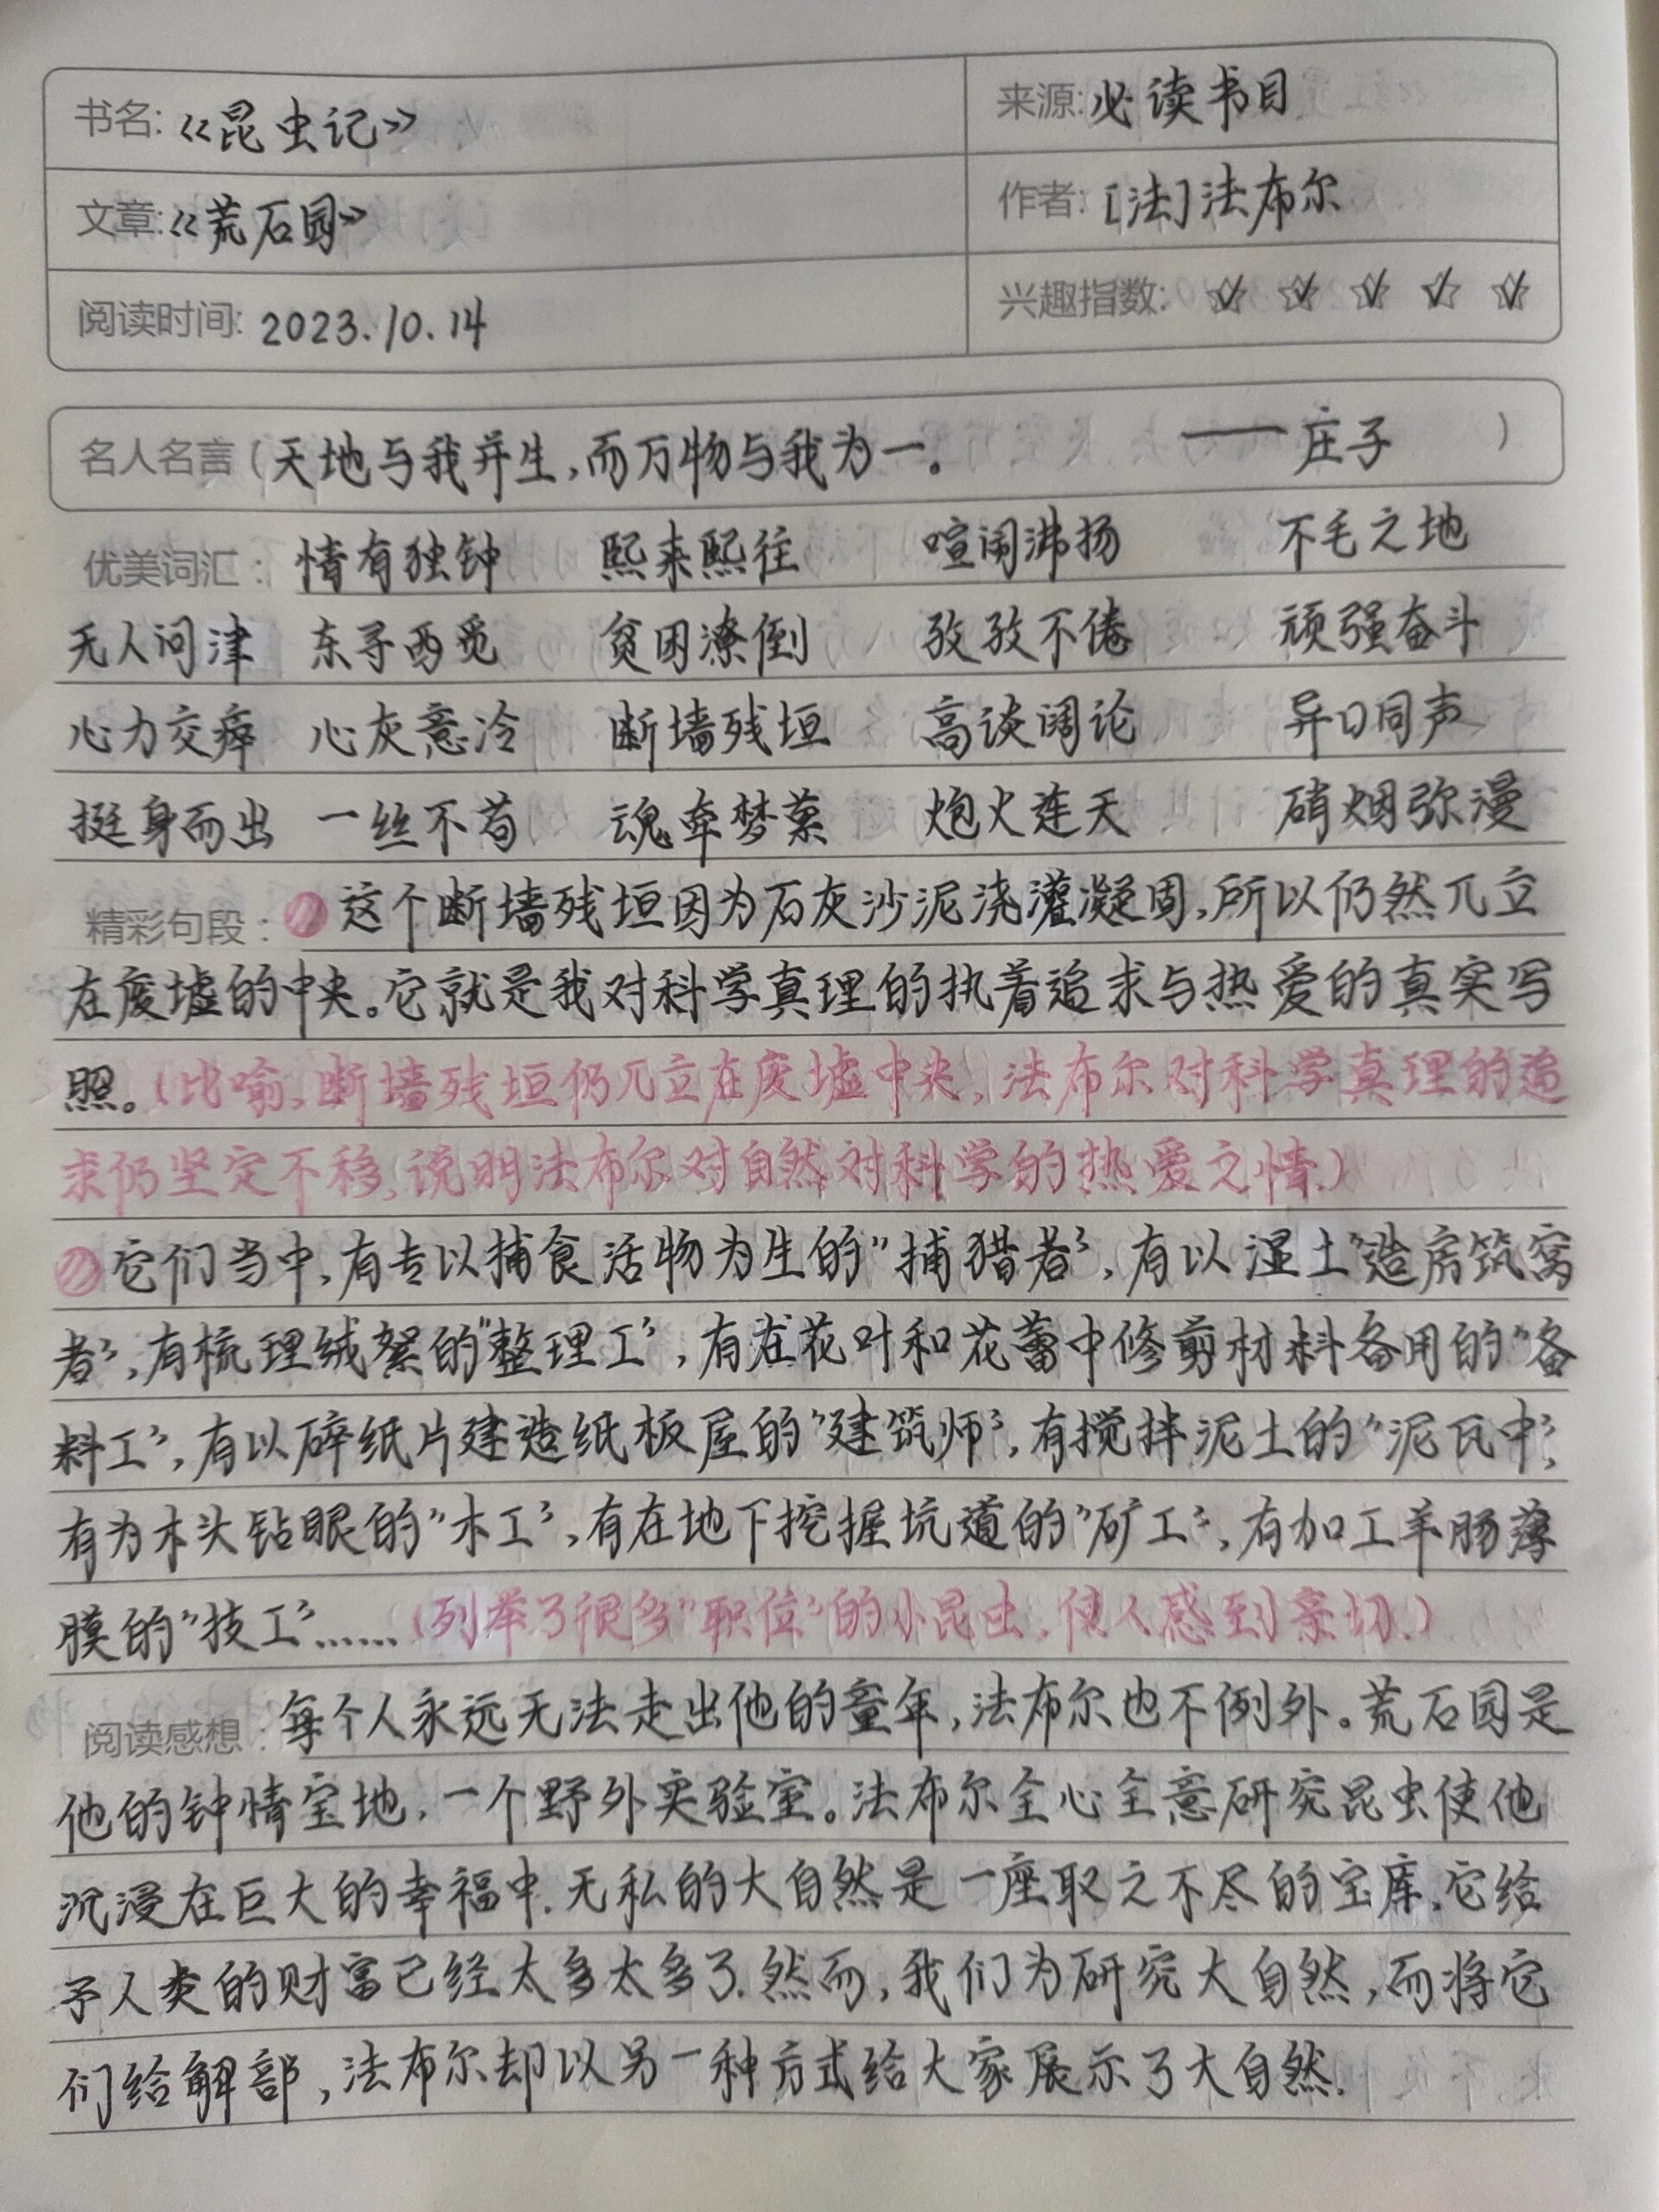 书名:《昆虫记》 来源:必读书目
文章:《荒石园》 作者:[法]法布尔
阅读时间: 2023.10.14 兴趣指数: ☆ ☆ ☆ ☆ ☆
名人名言(天地与我并生,而万物与我为一。 ——庄子 )
优美词汇: 情有独钟 熙来熙往 喧闹沸扬 不毛之地
无人问津 东寻西觅 贫困潦倒 孜孜不倦 顽强奋斗
心力交瘁 心灰意冷 断墙残垣 高谈阔论 异口同声
挺身而出 一丝不苟 魂牵梦萦 炮火连天 硝烟弥漫
精彩句段: 这个断墙残垣因为石灰沙泥浇灌凝固,所以仍然兀立
在废墟的中央。它就是我对科学真理的执着追求与热爱的真实写
照。(比喻,断墙残垣仍兀立在废墟中央,法布尔对科学真理的追
求仍坚定不移,说明法布尔对自然对科学的热爱之情)
它们当中,有专以捕食活物为生的“捕猎者”,有以湿土“造房筑窝
者”,有梳理绒絮的“整理工”,有在花叶和花蕾中修剪材料备用的“备
料工”,有以碎纸片建造纸板屋的“建筑师”,有搅拌泥土的“泥瓦中”,
有为木头钻眼的“木工”,有在地下挖掘坑道的“矿工”,有加工羊肠薄
膜的“技工”……(列举了很多“职位”的小昆虫,使人感到亲切.)
阅读感想: 每个人永远无法走出他的童年,法布尔也不例外。荒石园是
他的钟情宝地,一个野外实验室。法布尔全心全意研究昆虫使他
沉浸在巨大的幸福中.无私的大自然是一座取之不尽的宝库,它给
予人类的财富已经太多太多了.然而,我们为研究大自然,而将它
们给解部,法布尔却以另一种方式给大家展示了大自然.